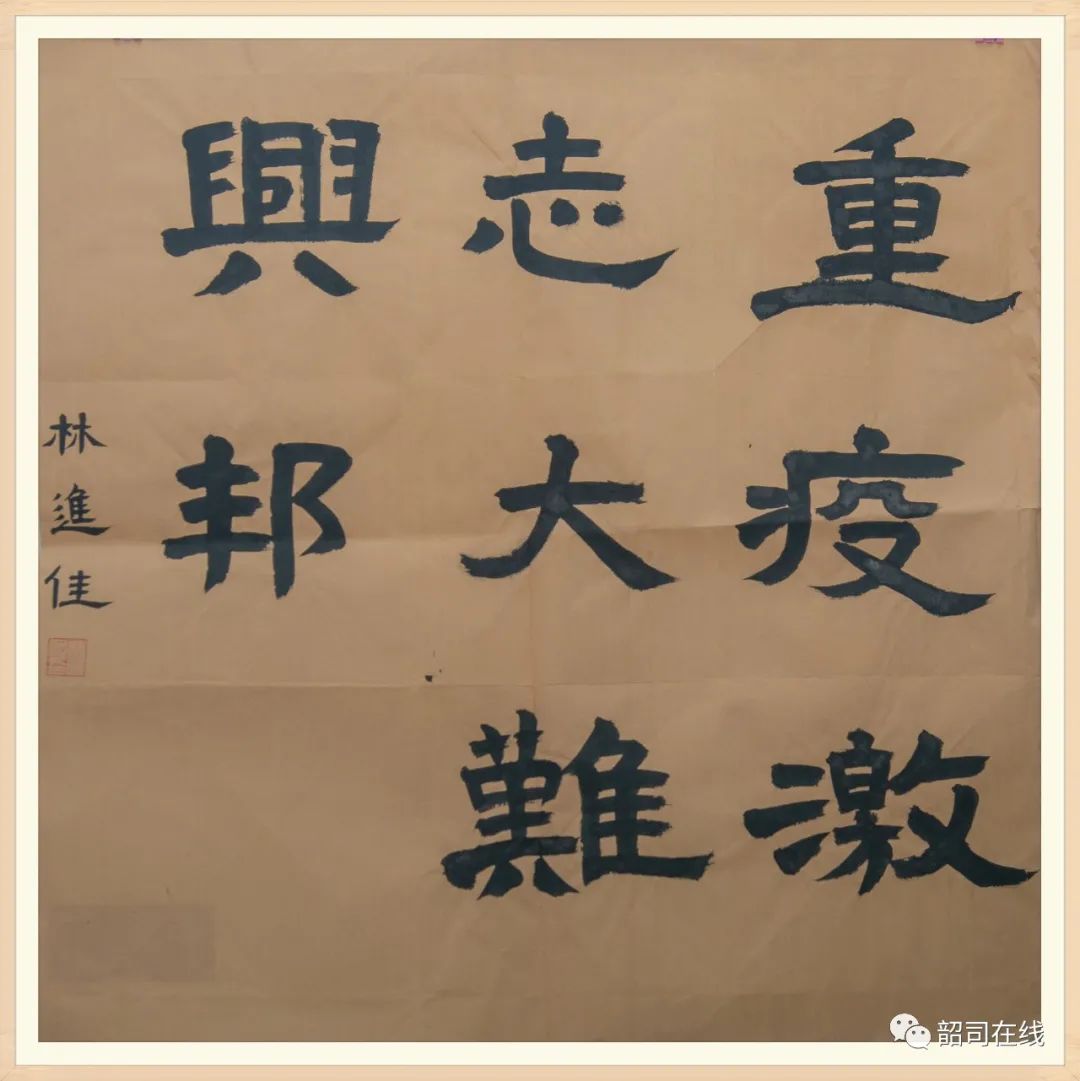 重疫激
志大難
興邦
林進佳
韶司在线